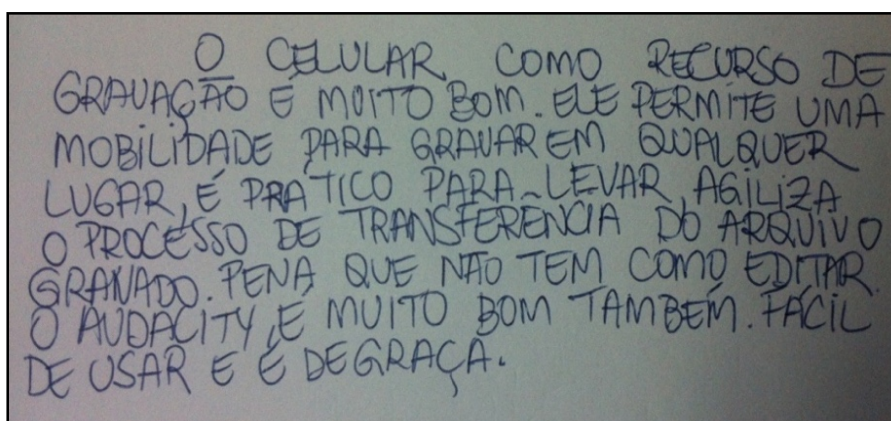 O CELULAR COMO RECURSO DE
GRAVAÇÃO É MUITO BOM. ELE PERMITE UMA
MOBILIDADE PARA GRAVAR EM QUALQUER
LUGAR, É PRATICO PARA LEVAR, AGILIZA
O PROCESSO DE TRANSFERENCIA DO ARQUIVO
GRAVADO. PENA QUE NÃO TEM COMO EDITAR.
O AUDACITY, É MUITO BOM TAMBÉM. FÁCIL
DE USAR E É DE GRAÇA.